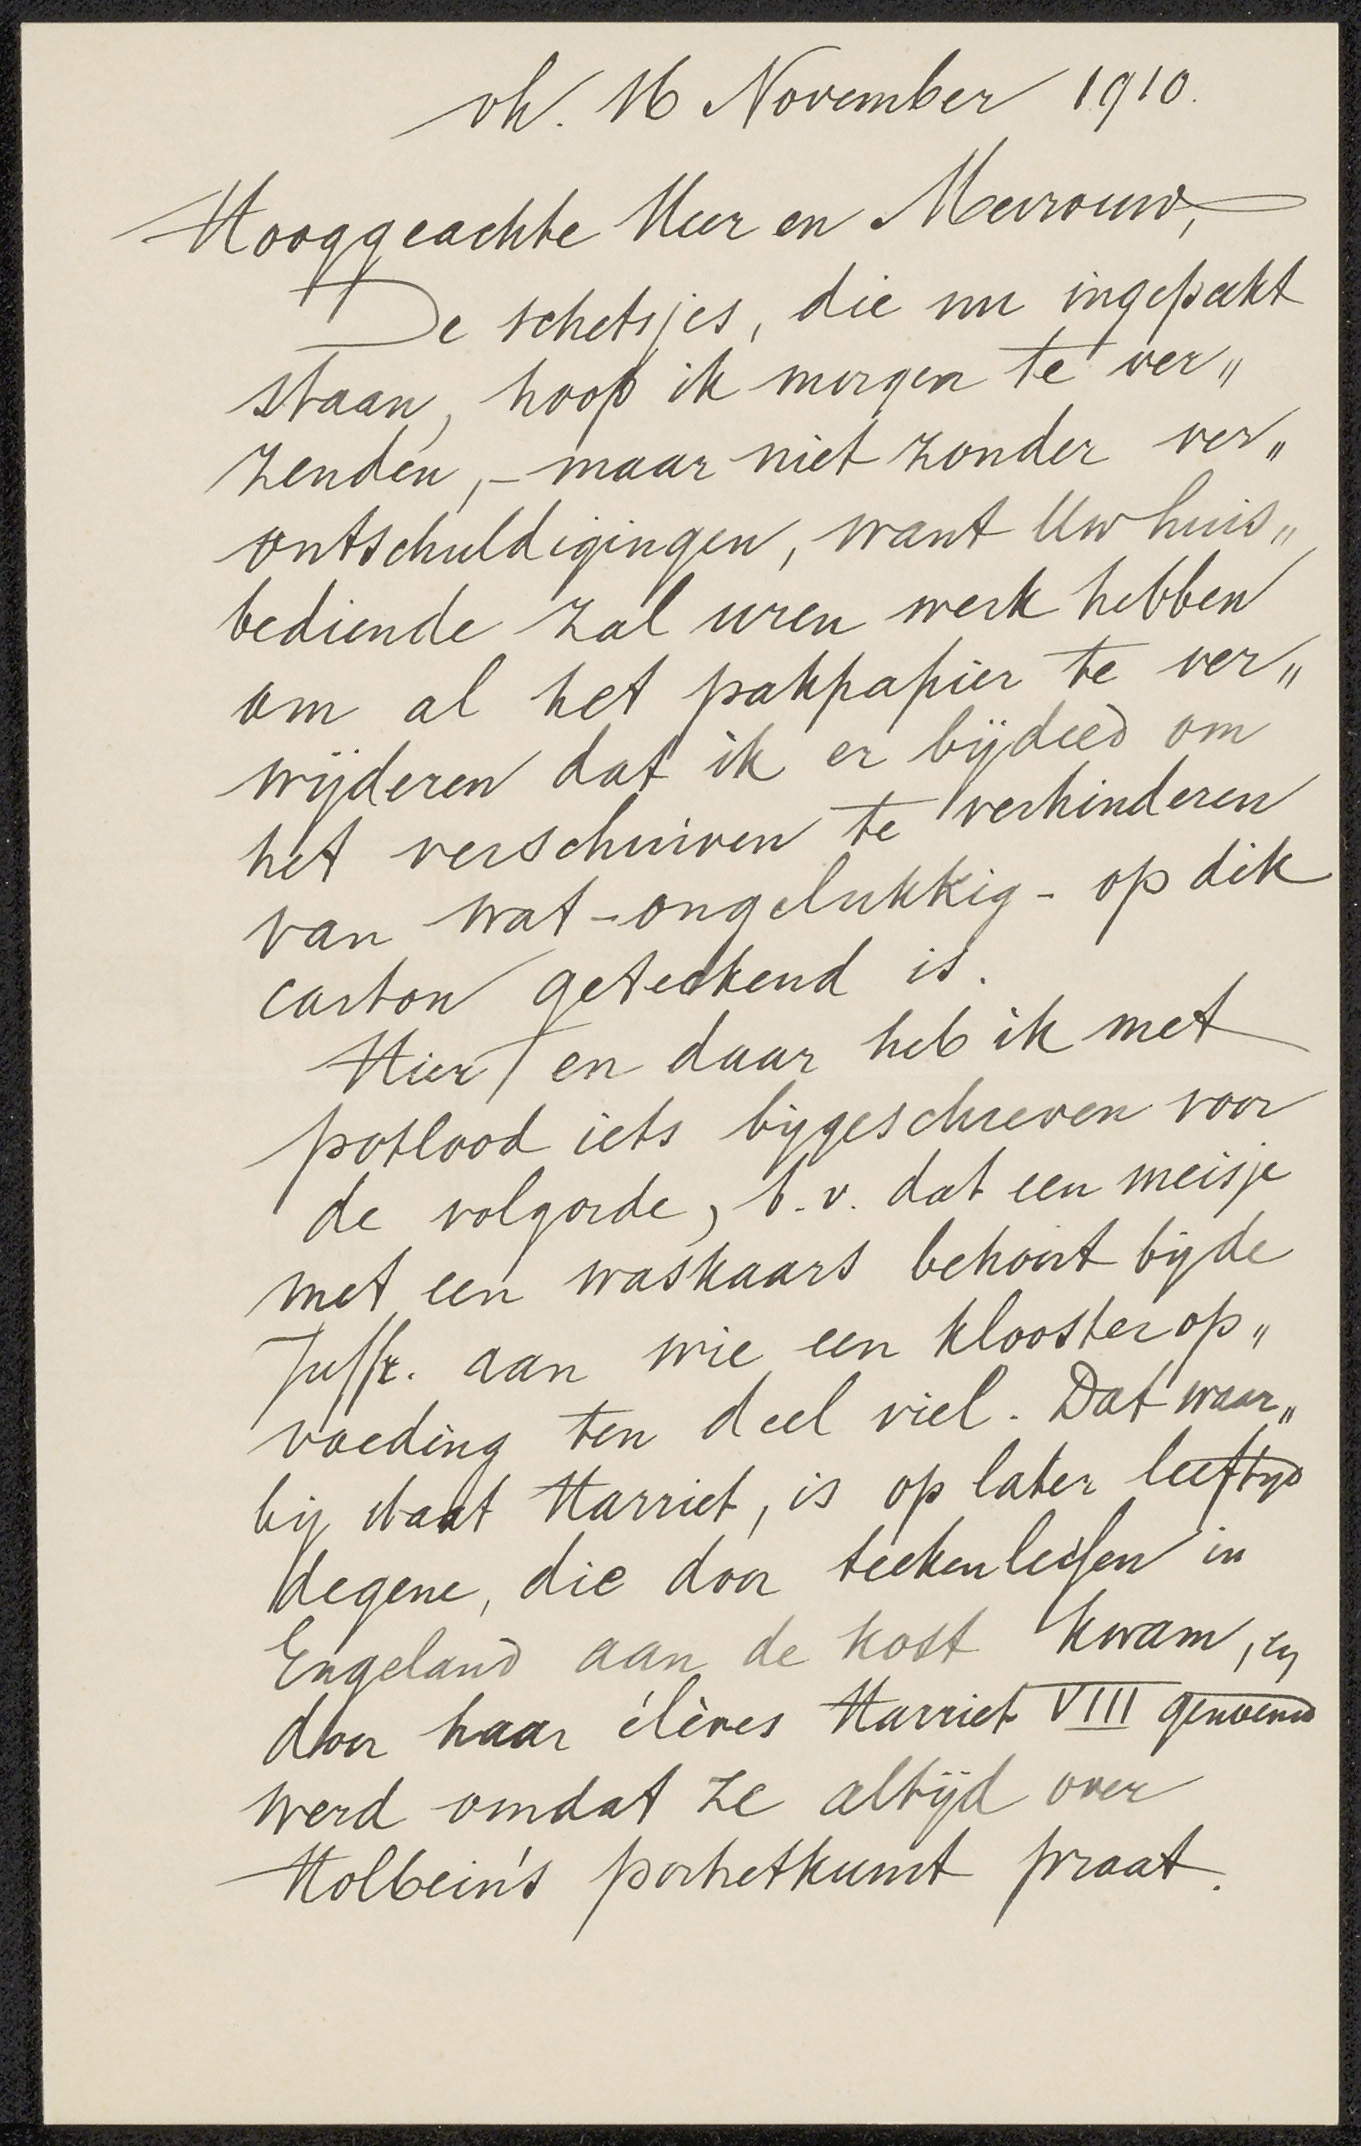 vh. 16 November 1910.
Hooggeachte Heer en Mevrouw,
De schetsjes, die nu ingepakt
staan, hoop ik morgen te ver„
zenden, – maar niet zonder ver„
ontschuldigingen, want Uw huis„
bediende zal uren werk hebben
om al het pakpapier te ver„
wijderen dat ik er bijdeed om
het verschuiven te verhinderen
van wat – ongelukkig – op dik
carton geteekend is.
Hier en daar heb ik met
potlood iets bijgeschreven voor
de volgorde, b.v. dat een meisje
met een waskaars behoort bij de
Juffr. aan wie een klooster op„
voeding ten deel viel. Dat waar„
bij staat Harriet, is op later leeftijd
degene, die door teekenlessen in
Engeland aan de kost kwam, en
door haar élèves Harriet VIII genoemd
werd omdat ze altijd over
Holbein's portretkunst praat.